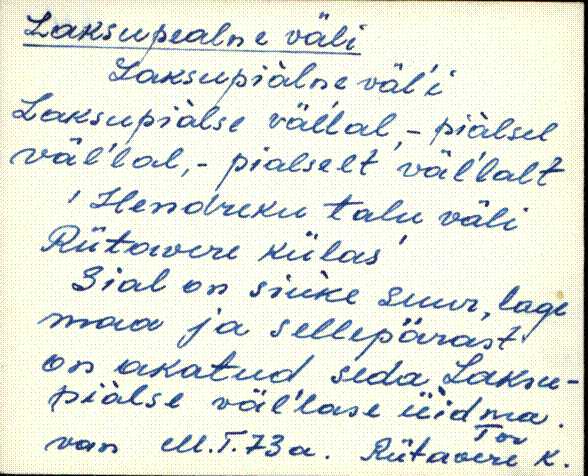 Laksupealne väli
Laksupiàlne väl'i
Laksupiàlse väl'lal, - piàlsel
väl'lal, - pialselt väl'lalt
'Hendreku talu väli
Rütavere külas'
Sial on siuke suur, lage
maa ja sellepärast
on akatud seda Laksu-
piàlse väl'lase üidma.
Tor
van M.T. 73a. Rütavere K.